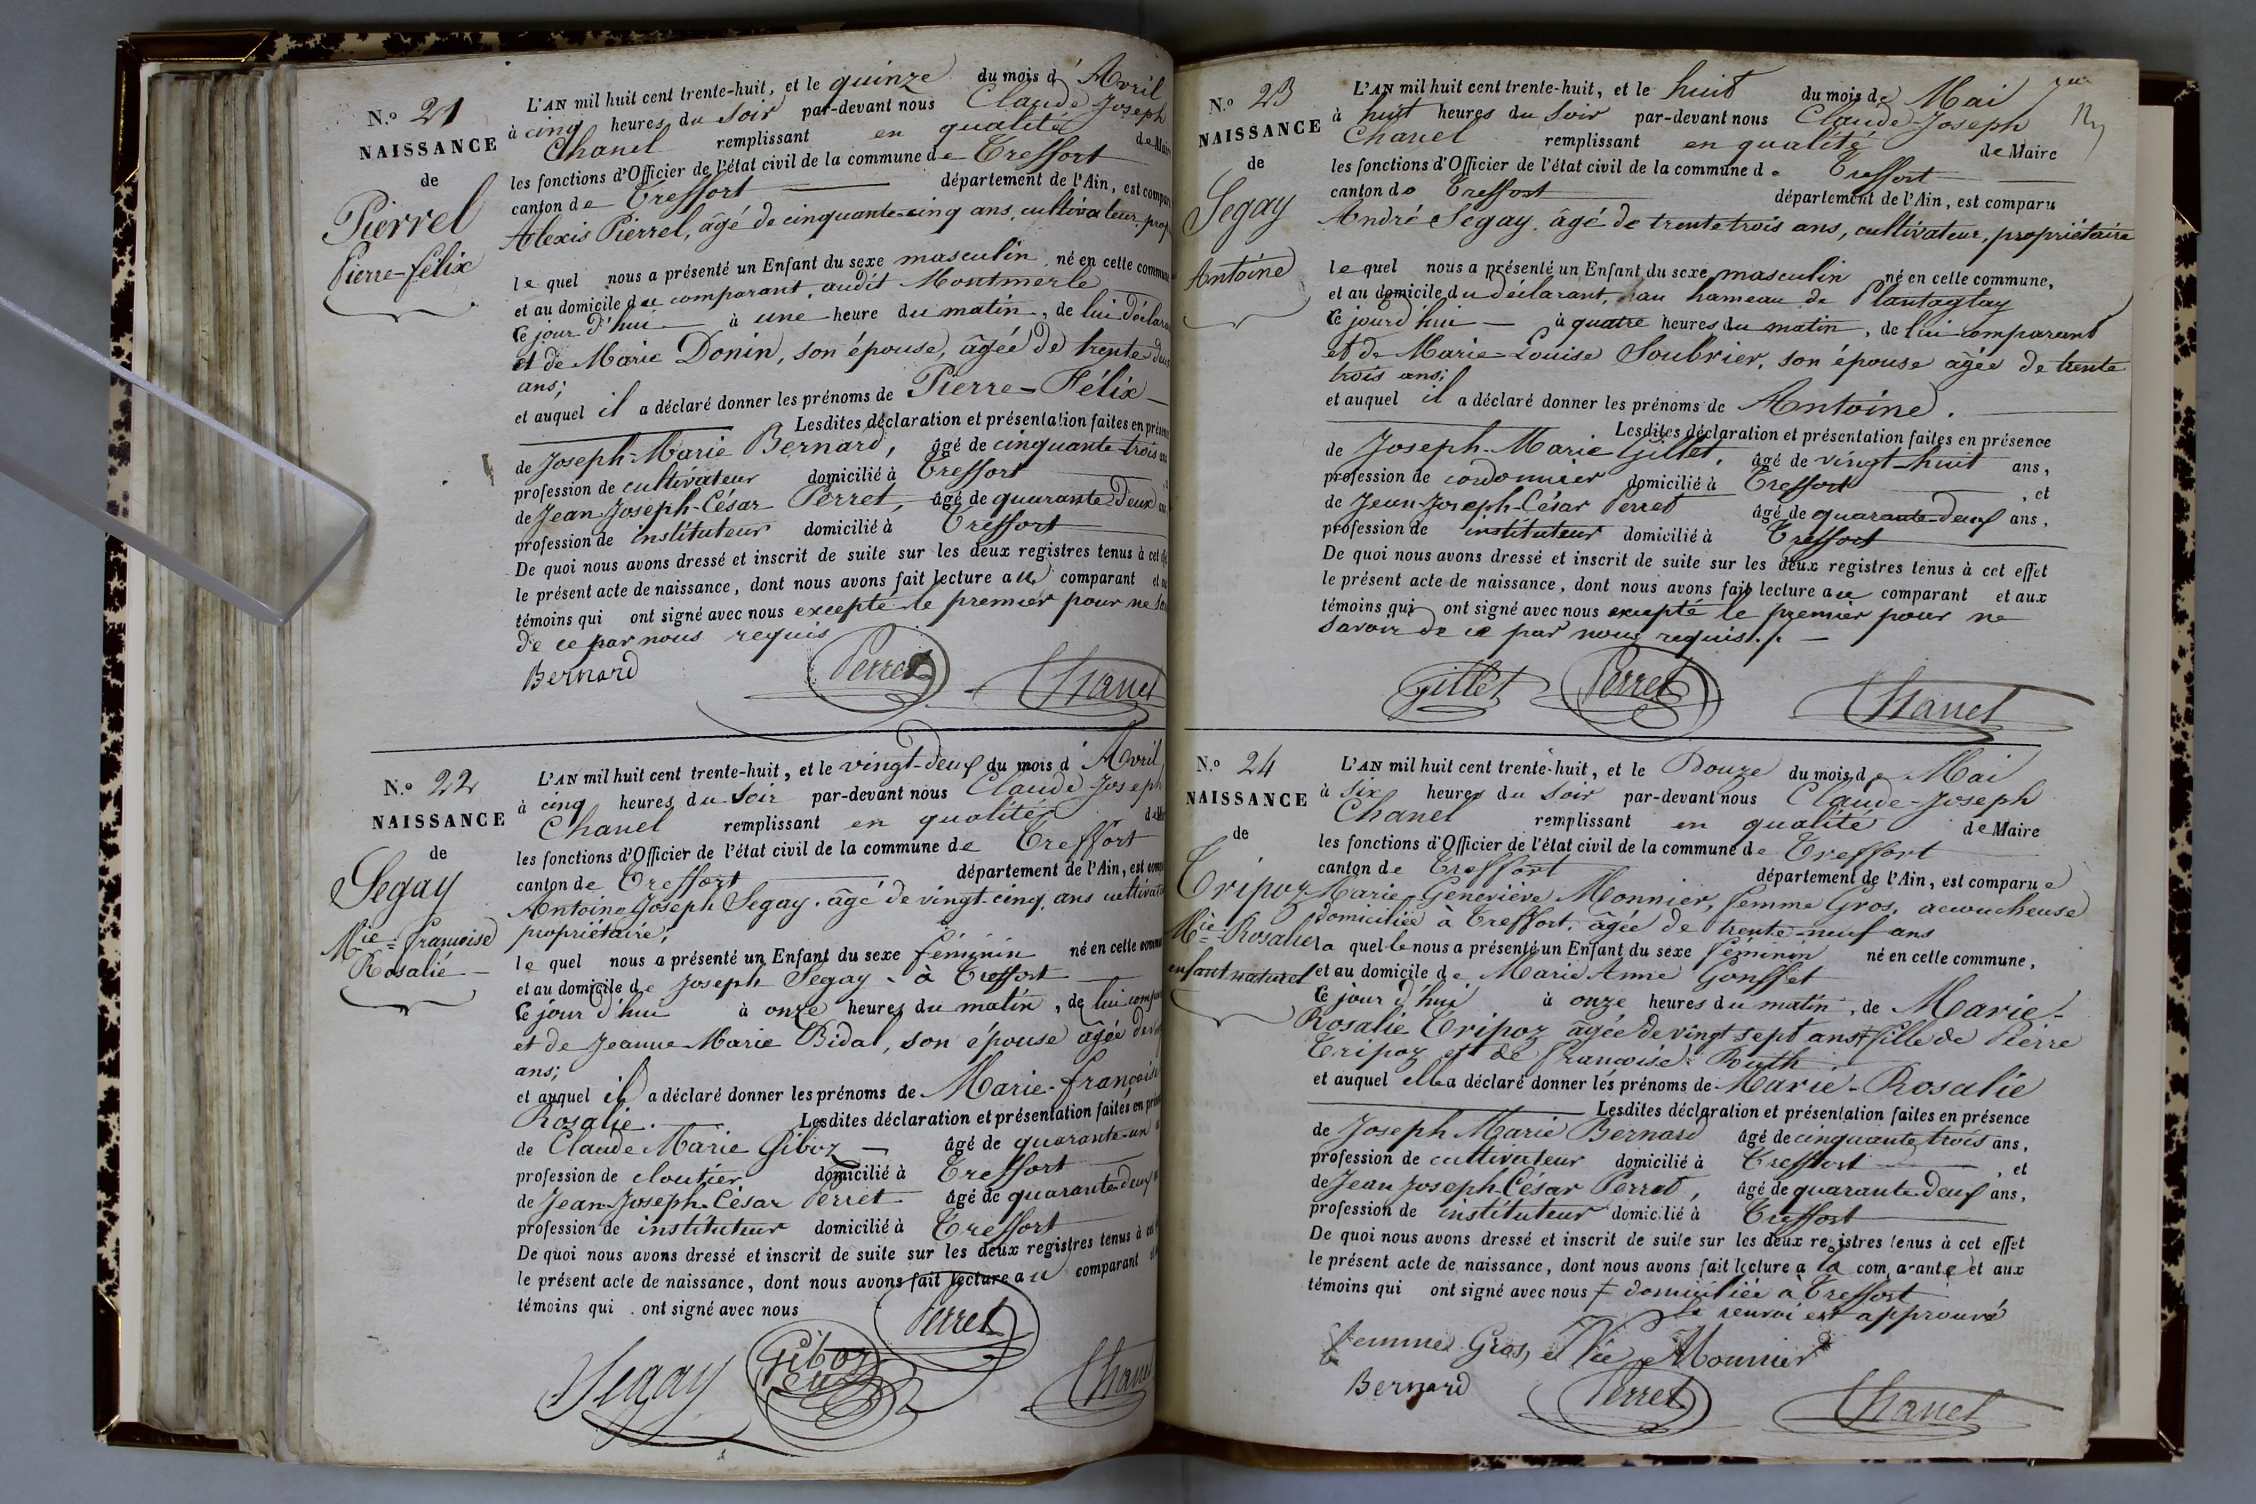 N.° 21
NAISSANCE
de
Pierrel
Pierre-félix
L'AN mil huit cent trente-huit, et le quinze du mois d'Avril
à cinq heures du Soir par-devant nous Claude Joseph
Chanel remplissant en qualité de Maire
les fonctions d'Officier de l'état civil de la commune de Treffort
canton de Treffort département de l'Ain, est
Alexis Pierrel, âgé de cinquante-cinq ans, cultivateur,
le quel nous a présenté un Enfant du sexe masculin né en cette
et au domicile du comparant, audit Montmerle
Ce jour d'hui à une heure du matin, de lui
et de Marie Donin, son épouse, âgée de trente
ans;
et auquel il a déclaré donner les prénoms de Pierre-Félix
Lesdites déclaration et présentation faites en
de Joseph-Marie Bernard, âgé de cinquante-trois
profession de cultivateur domicilié à Treffort
de Jean-Joseph-César Perret, âgé de quarante-deux
profession de instituteur domicilié à Treffort
De quoi nous avons dressé et inscrit de suite sur les deux registres tenus à cet
le présent acte de naissance, dont nous avons fait lecture au comparant et
témoins qui ont signé avec nous excepté le premier pour ne
de ce par nous requis
Bernard Perret Chanel
N.° 22
NAISSANCE
de
Segay
Mie = françoise
Rosalie
L'AN mil huit cent trente-huit, et le vingt-deux du mois d'Avril
à cinq heures du Soir par-devant nous Claude Joseph
Chanel remplissant en qualité
les fonctions d'Officier de l'état civil de la commune de Treffort
canton de Treffort département de l'Ain, est
Antoine Joseph Segay, âgé de vingt-cinq ans
propriétaire;
le quel nous a présenté un Enfant du sexe féminin né en cette
et au domicile de Joseph Segay à Treffort
Ce jour d'hui à onze heures du matin, de lui
et de Jeanne Marie Bidal, son épouse âgée de
ans;
et auquel il a déclaré donner les prénoms de Marie-françoise
Rosalie. Lesdites déclaration et présentation faites en
de Claude Marie Giboz âgé de quarante-un
profession de cloutier domicilié à Treffort
de Jean-Joseph-César Perret âgé de quarante-deux
profession de instituteur domicilié à Treffort
De quoi nous avons dressé et inscrit de suite sur les deux registres tenus à
le présent acte de naissance, dont nous avons fait lecture au comparant
témoins qui ont signé avec nous
Segay Giboz Perret Chanel
N.° 23
NAISSANCE
de
Segay
Antoine
L'AN mil huit cent trente-huit, et le huit du mois de Mai
à huit heures du Soir par-devant nous Claude-Joseph
Chanel remplissant en qualité de Maire
les fonctions d'Officier de l'état civil de la commune de Treffort
canton de Treffort département de l'Ain, est comparu
André Segay, âgé de trente trois ans, cultivateur, propriétaire
le quel nous a présenté un Enfant du sexe masculin né en cette commune,
et au domicile du déclarant, au hameau de Plantaglay
Ce jourd'hui à quatre heures du matin, de lui comparant
et de Marie-Louise Soubrier, son épouse âgée de trente
trois ans;
et auquel il a déclaré donner les prénoms de Antoine.
Lesdites déclaration et présentation faites en présence
de Joseph-Marie Gillet, âgé de vingt-huit ans,
profession de cordonnier domicilié à Treffort, et
de Jean-Joseph-César Perret âgé de quarante-deux ans,
profession de instituteur domicilié à Treffort
De quoi nous avons dressé et inscrit de suite sur les deux registres tenus à cet effet
le présent acte de naissance, dont nous avons fait lecture au comparant et aux
témoins qui ont signé avec nous excepté le premier pour ne
savoir de ce par nous requis./.
Gillet Perret Chanel
N.° 24
NAISSANCE
de
Tripoz
Mie = Rosalie
enfant naturel
L'AN mil huit cent trente-huit, et le Douze du mois de Mai
à six heures du Soir par-devant nous Claude-Joseph
Chanel remplissant en qualité de Maire
les fonctions d'Officier de l'état civil de la commune de Treffort
canton de Treffort département de l'Ain, est comparue
Marie Geneviève Monnier, femme Gros, accoucheuse
domiciliée à Treffort, âgée de trente-neuf ans
la quelle nous a présenté un Enfant du sexe féminin né en cette commune,
et au domicile de Marie Anne Gonffet
Ce jour d'hui à onze heures du matin, de Marie-
Rosalie Tripoz âgée de vingt sept ans ≠ fille de Pierre
Tripoz et de françoise Routh
et auquel elle a déclaré donner les prénoms de Marie-Rosalie
Lesdites déclaration et présentation faites en présence
de Joseph Marie Bernard âgé de cinquante trois ans,
profession de cultivateur domicilié à Treffort, et
de Jean Joseph César Perret, âgé de quarante-deux ans,
profession de instituteur domicilié à Treffort
De quoi nous avons dressé et inscrit de suite sur les deux registres tenus à cet effet
le présent acte de naissance, dont nous avons fait lecture a la comparante et aux
témoins qui ont signé avec nous ≠ domiciliée à Treffort
le renvoi est approuvé
femme Gros, Née Monnier
Bernard Perret Chanel